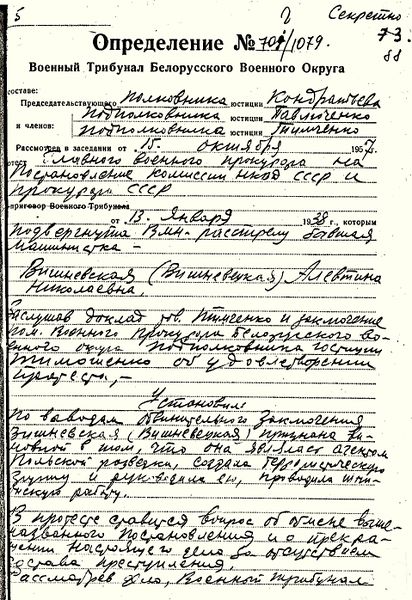 5 2 Секретно
73
88
Определение № 701/1079.
Военный Трибунал Белорусского Военного Округа
составе:
Председательствующего полковника юстиции Кондратьева
подполковника юстиции Павлюченко
и членов: подполковника юстиции Тимченко
Рассмотрев в заседании от 15. октября 1957.
протест Главного военного прокурора на
Постановление комиссии НКВД СССР и
прокурора СССР
приговор Военного Трибунала
от 13. Января 1938 г., которым
подвергнута ВМН-расстрелу бывшая
машинистка –
Вишневская (Вишневецкая) Алевтина
Николаевна,
Заслушав доклад тов. и заключение
пом. Военного прокурора Белорусского во-
енного округа подполковника юстиции
Тимошенко об удовлетворении
протеста,-
Установил:
По выводам обвинительного заключения
Вишневская (Вишневецкая) признана ви-
новной в том, что она являлась агентом
Польской разведки, создала
группу и руководила ею, проводила шпи-
онскую работу.
В протесте ставится вопрос об отмене выше-
названного Постановления и о прекра-
щении настоящего дела за отсутствием
состава преступления.
Рассмотрев дело, Военный трибунал